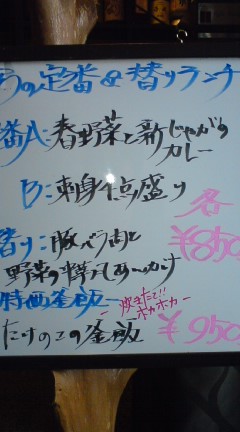 の定番&替りランチ
番A:春野菜と新じゃがの
カレー
B:刺身4点盛り
各
¥850
替り:豚バラ肉と
野菜の精風あんかけ
特画釜飯
炊きたて!!
ホカホカ
たけのこの釜飯
¥950